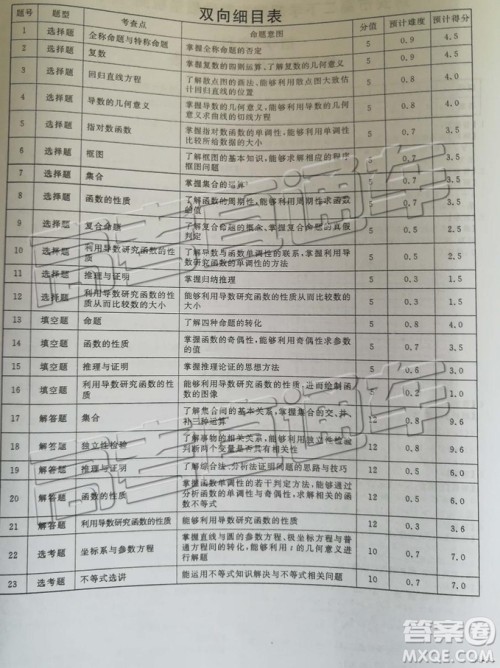 双向细目表
题号 题型 考查点 命题意图 分值 预计难度 预计得分
1 选择题 全称命题与特称命题 掌握全称命题的否定 5 0.9 4.5
2 选择题 复数 掌握复数的四则运算,了解复数的几何意义 5 0.9 4.5
3 选择题 回归直线方程 了解散点图的画法,能够利用散点图大致估
计直线的位置 5 0.8 4.0
4 选择题 导数的几何意义 掌握导数的几何意义,能够利用导数的几何
意义求曲线的切线方程 5 0.8 4.0
5 选择题 指对数函数 掌握指对数函数的单调性,能够利用单调性
比较所给数据的大小 5 0.7 3.5
6 选择题 框图 了解框图的基本知识,能够求解相应的程序
框图问题 5
7 选择题 集合 掌握集合的运算 5
8 选择题 函数的性质 了解函数的周期性,能够利用周期性求函数
的值 5
9 选择题 复合命题 了解复合命题的概念,掌握复合命题的真假
判定 5
10 选择题 利用导数研究函数的性质 了解导数与函数单调性的联系,掌握利用导
数研究函数单调性的方法 5 0.7 3.5
11 选择题 推理与证明 掌握归纳推理 5 0.5 2.5
12 选择题 利用导数研究函数的性质
从而比较数的大小 能够利用导数研究函数的性质从而比较数
的大小 5 0.3 1.5
13 填空题 命题 了解四种命题的转化 5 0.8 4.0
14 填空题 函数的性质 掌握函数的奇偶性,能够利用奇偶性求参数
的值 5 0.7 3.5
15 填空题 推理与证明 掌握推理论证的思想方法 5 0.6 3.0
16 填空题 函数的性质 能够利用导数研究函数的性质,进而绘制函数
的图像 5 0.2 1.0
17 解答题 集合 了解集合间的基本关系,掌握集合的交、并、补三种运算 12 0.8 9.6
18 解答题 独立性检验 了解事物的相关性,能够利用独立性检验
判断两个变量是否具有相关性 12 0.8 9.6
19 解答题 推理与证明 了解综合法、分析法证明问题的思路与技巧 12 0.5 6.0
20 解答题 函数的性质 掌握函数单调性的若干判定方法,能够通过
分析函数的单调性与奇偶性,求解相关的函
数不等式 12 0.5 6.0
21 解答题 利用导数研究函数的性质 能够利用导数研究函数的性质 12 0.3 3.6
22 选考题 坐标系与参数方程 掌握直线与圆的参数方程、极坐标方程与普
通方程间的转化,能够利用t的几何意义进
行解题 10 0.7 7.0
23 选考题 不等式选讲 能运用不等式知识解决与不等式相关问题 10 0.7 7.0
高考直通车
高考直通车
答案圈
MXQE.COM